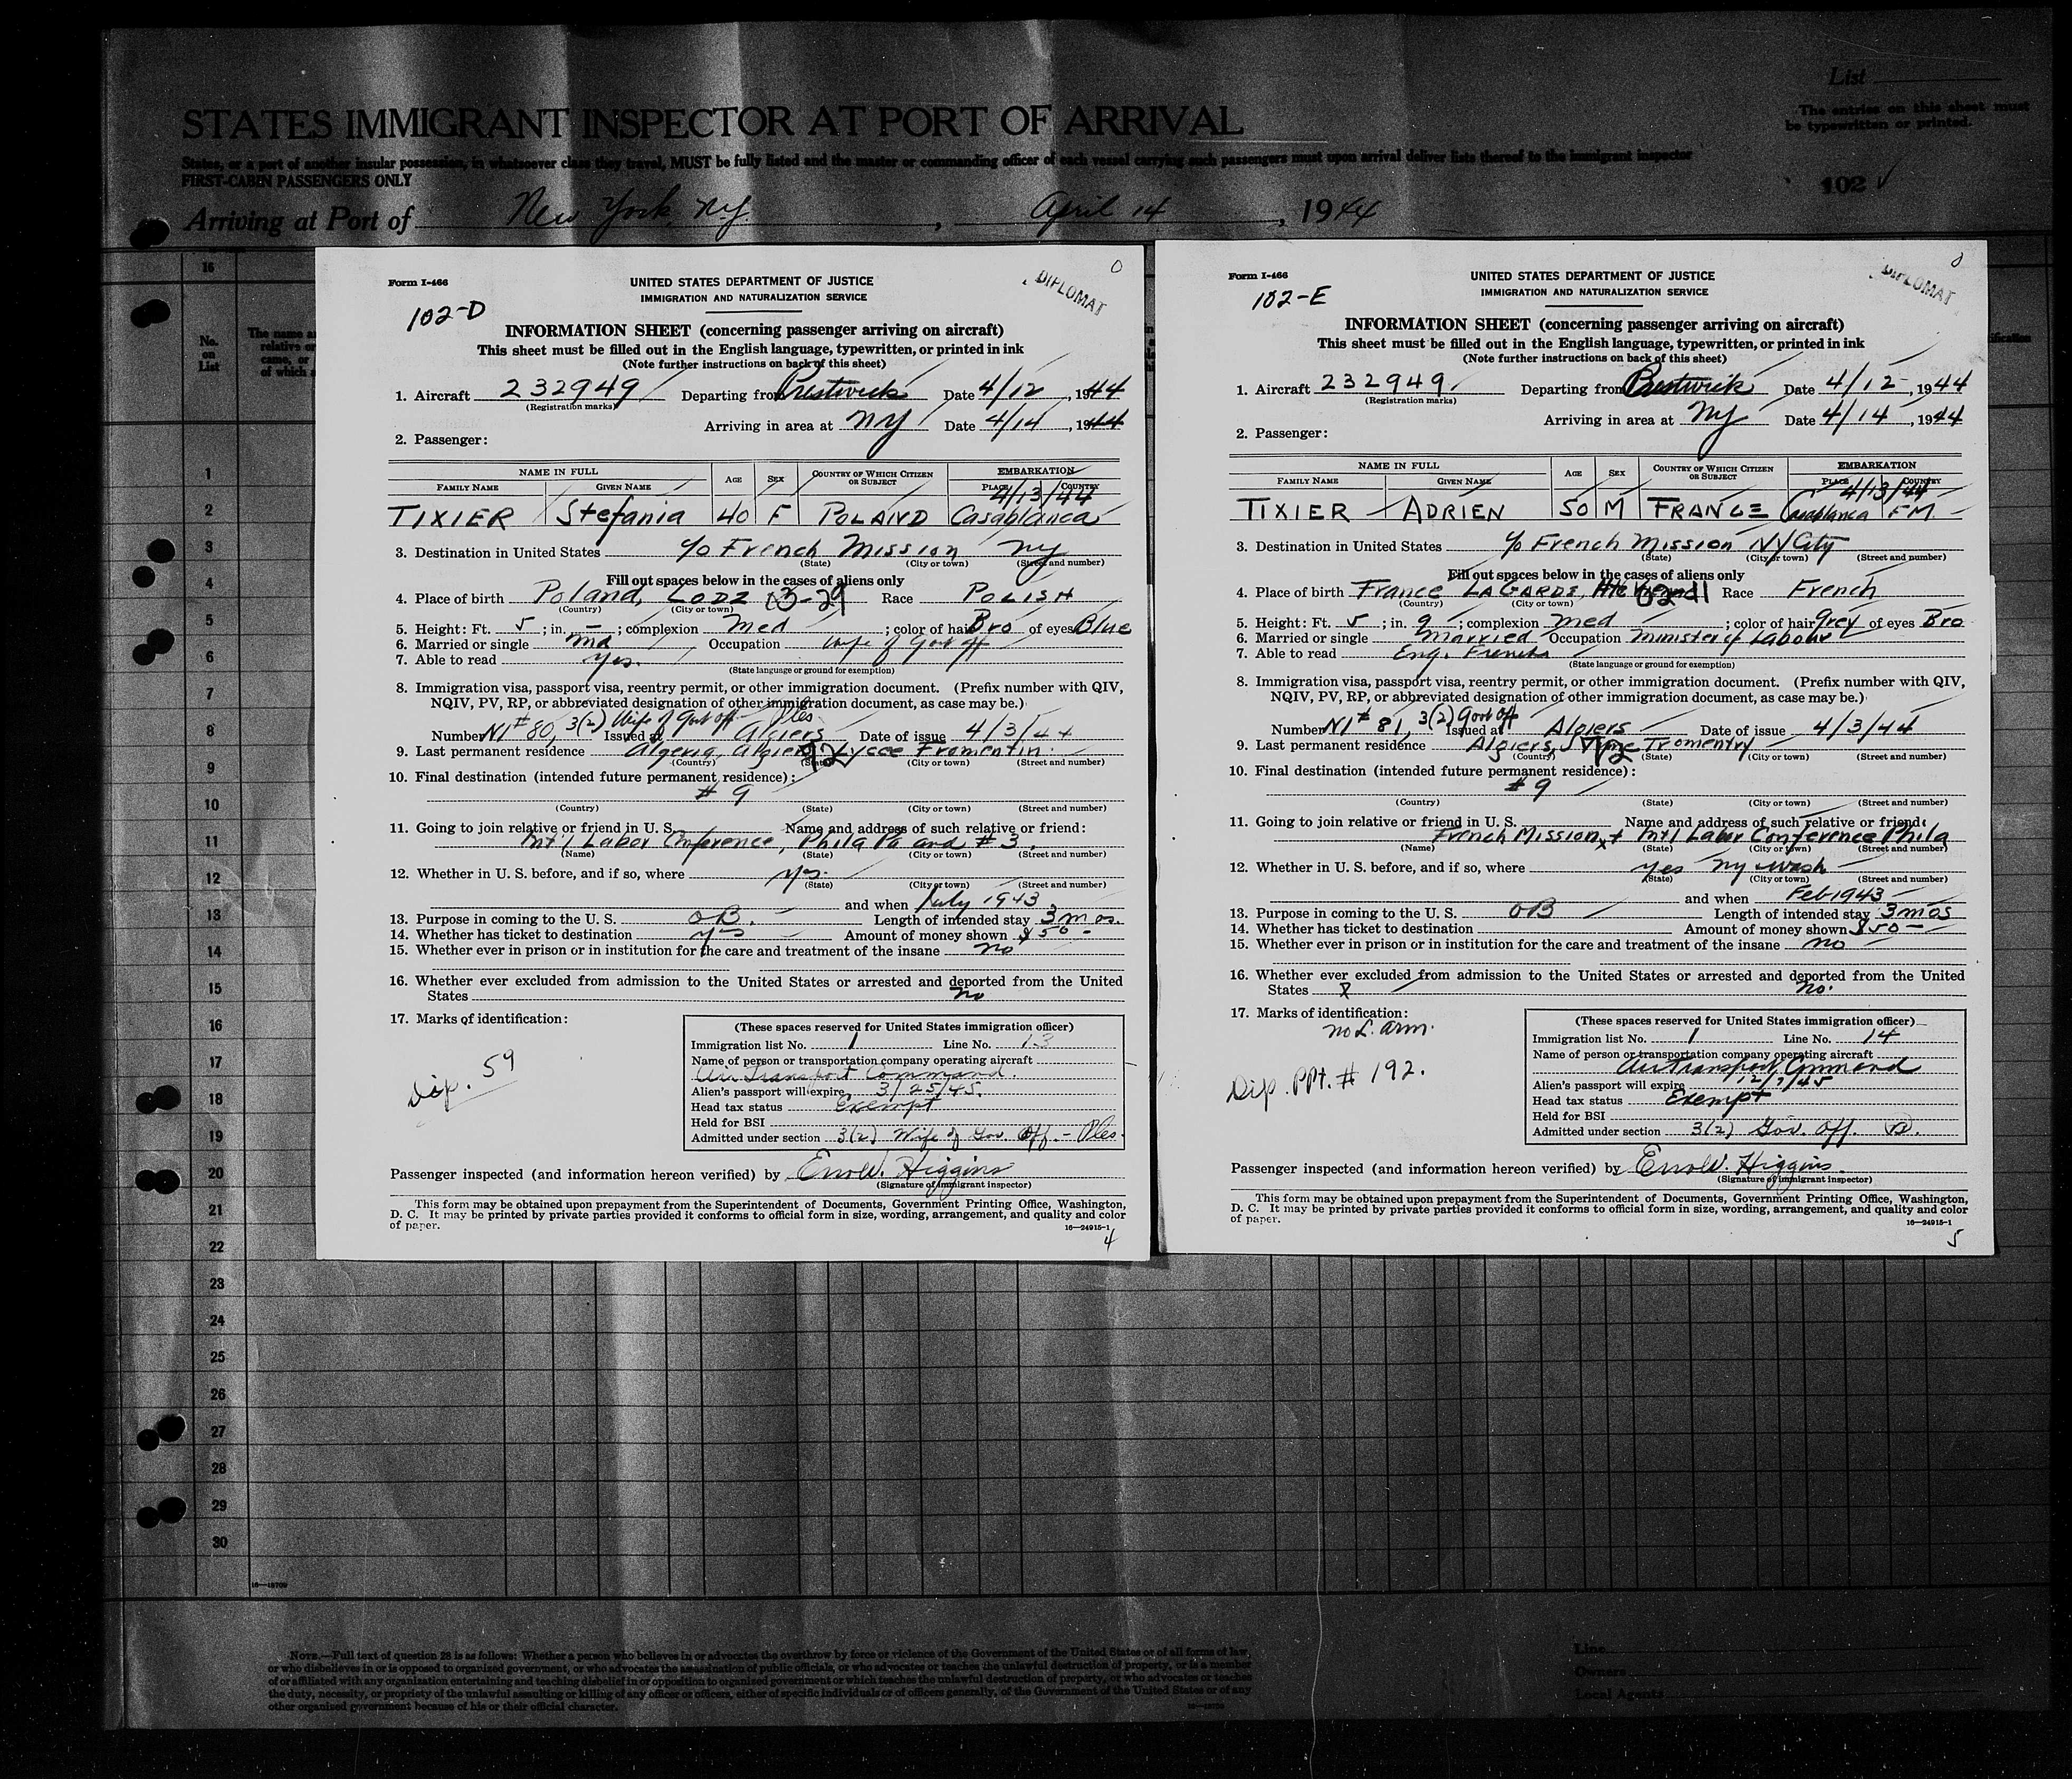 List
STATES IMMIGRANT INSPECTOR AT PORT OF ARRIVAL
The entries on this sheet must
be typewritten or printed.
States, or a port of another insular possession, in whatsoever class they travel, MUST be fully listed and the master or commanding officer of each vessel carrying such passengers must upon arrival deliver lists thereof to the immigrant inspector
FIRST-CABIN PASSENGERS ONLY
102 ✓
Arriving at Port of New York, N.Y. , April 14 , 1944
16
No.
on
List
1
2
3
4
5
6
7
8
9
10
11
12
13
14
15
16
17
18
19
20
21
22
23
24
25
26
27
28
29
30
Form I-466
UNITED STATES DEPARTMENT OF JUSTICE
IMMIGRATION AND NATURALIZATION SERVICE
DIPLOMAT
0
102-D
INFORMATION SHEET (concerning passenger arriving on aircraft)
This sheet must be filled out in the English language, typewritten, or printed in ink
(Note further instructions on back of this sheet)
1. Aircraft 232949 Departing from Prestwick Date 4/12, 1944
(Registration marks)
Arriving in area at NY Date 4/14, 1944
2. Passenger:
NAME IN FULL AGE SEX COUNTRY OF WHICH CITIZEN OR SUBJECT EMBARKATION
FAMILY NAME GIVEN NAME PLACE COUNTRY
4/13/44
TIXIER Stefania 40 F POLAND Casablanca
3. Destination in United States c/o French Mission NY
(State) (City or town) (Street and number)
Fill out spaces below in the cases of aliens only
4. Place of birth Poland, LODZ Race POLISH
(Country) (City or town)
5. Height: Ft. 5 ; in. – ; complexion Med ; color of hair Bro of eyes Blue
6. Married or single md Occupation wife of Govt off
7. Able to read yes.
(State language or ground for exemption)
8. Immigration visa, passport visa, reentry permit, or other immigration document. (Prefix number with QIV,
NQIV, PV, RP, or abbreviated designation of other immigration document, as case may be.)
3(2) Wife of Govt off
Number NI #80, Issued at Algiers Date of issue 4/3/44
9. Last permanent residence Algeria, Algiers, Lycee Fromentin.
(Country) (State) (City or town) (Street and number)
10. Final destination (intended future permanent residence):
# 9
(Country) (State) (City or town) (Street and number)
11. Going to join relative or friend in U. S. Name and address of such relative or friend:
Int'l Labor Conference, Phila Pa and # 3.
(Name) (State) (City or town) (Street and number)
12. Whether in U. S. before, and if so, where yes.
(State) (City or town) (Street and number)
and when July 1943
13. Purpose in coming to the U. S. OB. Length of intended stay 3 mos.
14. Whether has ticket to destination yes Amount of money shown $50 –
15. Whether ever in prison or in institution for the care and treatment of the insane no
16. Whether ever excluded from admission to the United States or arrested and deported from the United
States no
17. Marks of identification:
Dip. 59
(These spaces reserved for United States immigration officer)
Immigration list No. 1 Line No. 13
Name of person or transportation company operating aircraft
Air Transport Command.
Alien's passport will expire 3/25/45.
Head tax status Exempt
Held for BSI
Admitted under section 3(2) Wife of Gov. Off. –
Passenger inspected (and information hereon verified) by Enold. Higgins
(Signature of immigrant inspector)
This form may be obtained upon prepayment from the Superintendent of Documents, Government Printing Office, Washington,
D. C. It may be printed by private parties provided it conforms to official form in size, wording, arrangement, and quality and color
of paper.
16—24915-1
4
Form I-466
UNITED STATES DEPARTMENT OF JUSTICE
IMMIGRATION AND NATURALIZATION SERVICE
DIPLOMAT
102-E
INFORMATION SHEET (concerning passenger arriving on aircraft)
This sheet must be filled out in the English language, typewritten, or printed in ink
(Note further instructions on back of this sheet)
1. Aircraft 232949. Departing from Prestwick Date 4/12, 1944
(Registration marks)
Arriving in area at NY Date 4/14, 1944
2. Passenger:
NAME IN FULL AGE SEX COUNTRY OF WHICH CITIZEN OR SUBJECT EMBARKATION
FAMILY NAME GIVEN NAME PLACE COUNTRY
4/13/44
TIXIER ADRIEN 50 M FRANCE Casablanca F.M.
3. Destination in United States c/o French Mission NY City
(State) (City or town) (Street and number)
Fill out spaces below in the cases of aliens only
4. Place of birth France LA GARDE, Race French
(Country) (City or town)
5. Height: Ft. 5 ; in. 9 ; complexion med ; color of hair Grey of eyes Bro
6. Married or single Married Occupation Minister of Labour
7. Able to read Eng. French
(State language or ground for exemption)
8. Immigration visa, passport visa, reentry permit, or other immigration document. (Prefix number with QIV,
NQIV, PV, RP, or abbreviated designation of other immigration document, as case may be.)
3(2) Govt Off
Number NI # 81, Issued at Algiers Date of issue 4/3/44
9. Last permanent residence Algiers,
(Country) (State) (City or town) (Street and number)
10. Final destination (intended future permanent residence):
# 9
(Country) (State) (City or town) (Street and number)
11. Going to join relative or friend in U. S. Name and address of such relative or friend:
French Mission, + Int'l Labor Conference Phila
(Name) (State) (City or town) (Street and number)
12. Whether in U. S. before, and if so, where yes NY Wash
(State) (City or town) (Street and number)
and when Feb 1943
13. Purpose in coming to the U. S. OB Length of intended stay 3 mos
14. Whether has ticket to destination Amount of money shown $50 –
15. Whether ever in prison or in institution for the care and treatment of the insane no
16. Whether ever excluded from admission to the United States or arrested and deported from the United
States X no.
17. Marks of identification:
no L. arm.
Dip. PPt. # 192.
(These spaces reserved for United States immigration officer)
Immigration list No. 1 Line No. 14
Name of person or transportation company operating aircraft
Air Transport Command
Alien's passport will expire 12/7/45
Head tax status Exempt
Held for BSI
Admitted under section 3(2) Gov. Off.
Passenger inspected (and information hereon verified) by Enold. Higgins.
(Signature of immigrant inspector)
This form may be obtained upon prepayment from the Superintendent of Documents, Government Printing Office, Washington,
D. C. It may be printed by private parties provided it conforms to official form in size, wording, arrangement, and quality and color
of paper.
16—24915-1
5
NOTE.—Full text of question 28 is as follows: Whether a person who believes in or advocates the overthrow by force or violence of the Government of the United States or of all forms of law,
or who disbelieves in or is opposed to organized government, or who advocates the assassination of public officials, or who advocates or teaches the unlawful destruction of property, or is a member
of or affiliated with any organization entertaining and teaching disbelief in or opposition to organized government or which teaches the unlawful destruction of property, or who advocates or teaches
the duty, necessity, or propriety of the unlawful assaulting or killing of any officer or officers, either of specific individuals or of officers generally, of the Government of the United States or of any
other organized government because of his or their official character.
Line
Owners
Local Agents